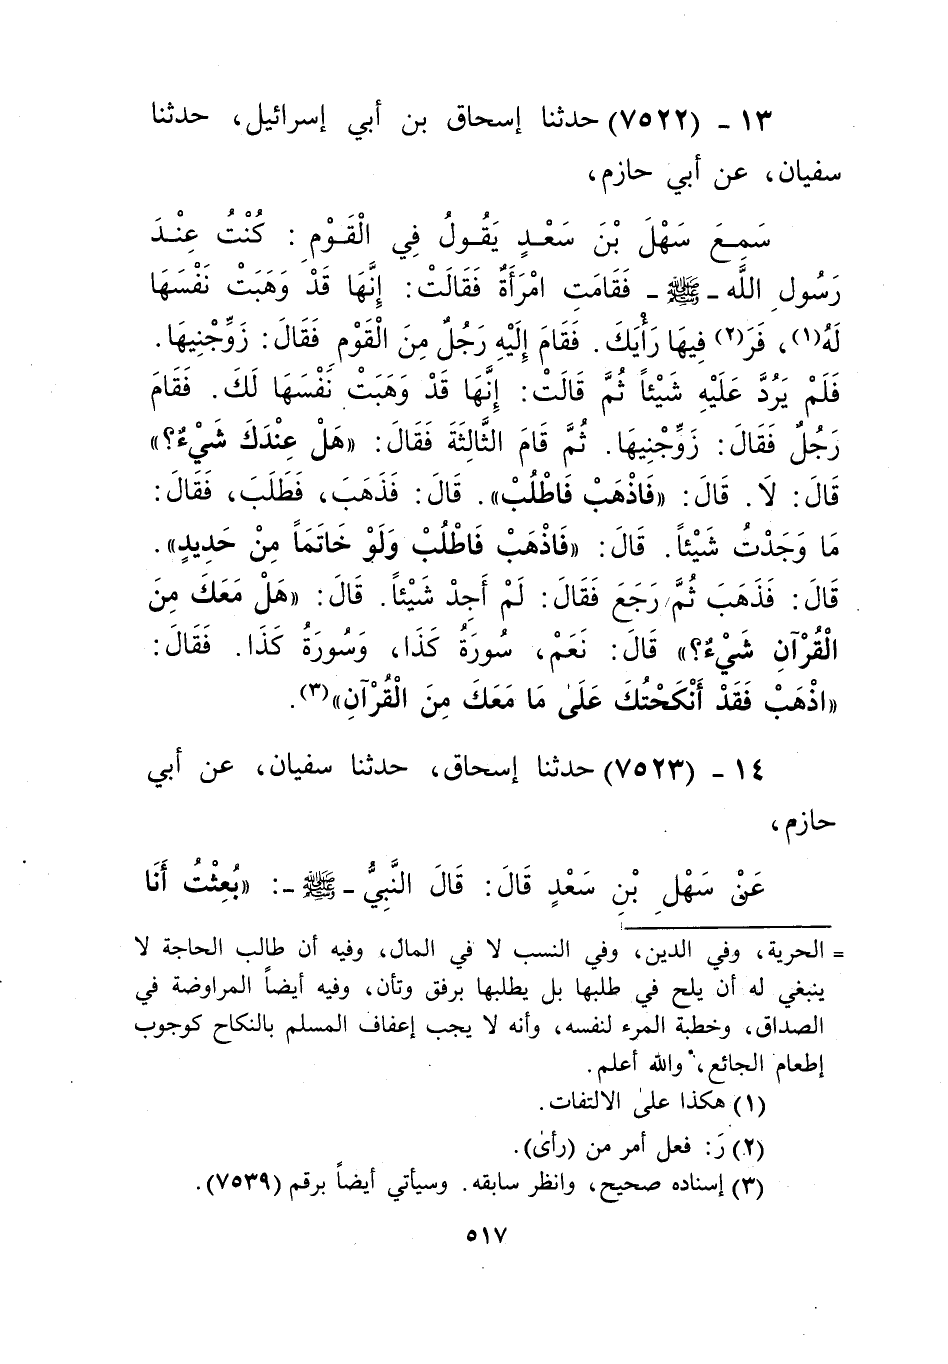 ١٣ ـ (٧٥٢٢) حدثنا إسحاق بن أبي إسرائيل، حدثنا
سفيان، عن أبي حازم،
سَمِعَ سَهْلَ بْنَ سَعْدٍ يَقُولُ فِي الْقَوْمِ : كُنْتُ عِنْدَ
رَسُولِ اللَّه ـ ﷺ ـ فَقَامَتِ امْرَأَةٌ فَقَالَتْ: إِنَّهَا قَدْ وَهَبَتْ نَفْسَهَا
لَهُ(١)، فَرَ(٢) فِيهَا رَأْيَكَ. فَقَامَ إِلَيْهِ رَجُلٌ مِنَ الْقَوْمِ فَقَالَ: زَوِّجْنِيهَا.
فَلَمْ يَرُدَّ عَلَيْهِ شَيْئاً ثُمَّ قَالَتْ: إِنَّهَا قَدْ وَهَبَتْ نَفْسَهَا لَكَ. فَقَامَ
رَجُلٌ فَقَالَ: زَوِّجْنِيهَا. ثُمَّ قَامَ الثَّالِثَةَ فَقَالَ: «هَلْ عِنْدَكَ شَيْءٌ؟»
قَالَ: لَا. قَالَ: «فَاذْهَبْ فَاطْلُبْ». قَالَ: فَذَهَبَ، فَطَلَبَ، فَقَالَ:
مَا وَجَدْتُ شَيْئاً. قَالَ: «فَاذْهَبْ فَاطْلُبْ وَلَوْ خَاتَمَاً مِنْ حَدِيدٍ».
قَالَ: فَذَهَبَ ثُمَّ رَجَعَ فَقَالَ: لَمْ أَجِدْ شَيْئاً. قَالَ: «هَلْ مَعَكَ مِنَ
الْقُرْآنِ شَيْءٌ؟» قَالَ: نَعَمْ، سُورَةُ كَذَا، وَسُورَةُ كَذَا. فَقَالَ:
«اذْهَبْ فَقَدْ أَنْكَحْتُكَ عَلَىٰ مَا مَعَكَ مِنَ الْقُرْآنِ»(٣).
١٤ ـ (٧٥٢٣) حدثنا إسحاق، حدثنا سفيان، عن أبي
حازم،
عَنْ سَهْلِ بْنِ سَعْدٍ قَالَ: قَالَ النَّبِيُّ ـ ﷺ ـ: «بُعِثْتُ أَنَا
= الحرية، وفي الدين، وفي النسب لا في المال، وفيه أن طالب الحاجة لا
ينبغي له أن يلح في طلبها بل يطلبها برفق وتأن، وفيه أيضاً المراوضة في
الصداق، وخطبة المرء لنفسه، وأنه لا يجب إعفاف المسلم بالنكاح كوجوب
إطعام الجائع، والله أعلم.
(١) هكذا علىٰ الالتفات.
(٢) رَ: فعل أمر من (رأىٰ).
(٣) إسناده صحيح، وانظر سابقه. وسيأتي أيضاً برقم (٧٥٣٩).
٥١٧